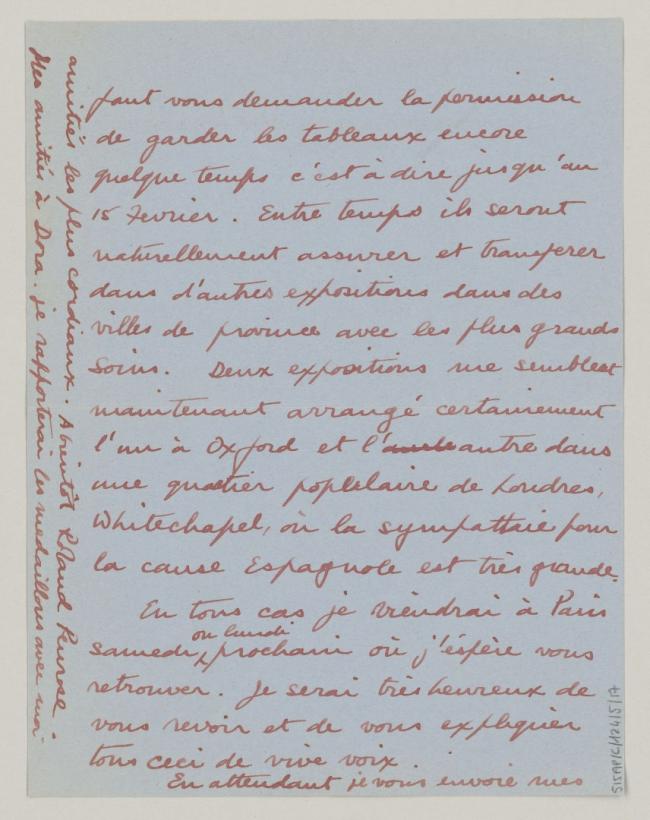 faut vous demander la permission
de garder les tableaux encore
quelque temps c'est à dire jusqu'au
15 Fevrier. Entre temps ils seront
naturellement assurer et transferer
dans d'autres expositions dans des
villes de province avec les plus grands
soins. Deux expositions me semblent
maintenant arrangé certainement
l'un à Oxford et l'autre dans
une quartier poplulaire de Londres,
Whitechapel, où la sympathie pour
la cause Espagnole est très grande.
En tous cas je viendrai à Paris
samedi, ou lundi prochain où j'éspère vous
retrouver. Je serai très heureux de
vous revoir et de vous expliquer
tous ceci de vive voix.
En attendant je vous envoie mes
amitiés les plus cordiaux. Abientôt Roland Penrose.
Mes amitiés à Dora. je rapporterai les medaillons avec moi
515AP/C/124/5/17